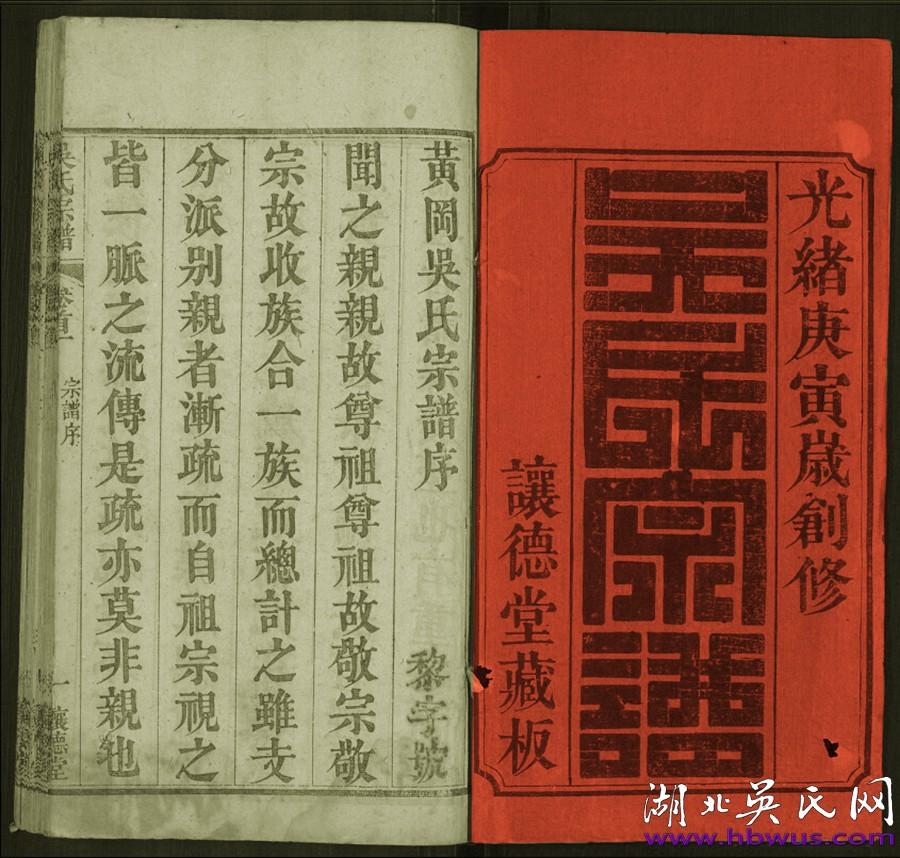 光緒庚寅歲創修
吳氏宗譜
讓德堂藏板
黃岡吳氏宗譜序
黎字號
聞之親親故尊祖尊祖故敬宗敬
宗故收族合一族而總計之雖支
分派别親者漸疏而自祖宗視之
皆一脈之流傳是疏亦莫非親也
吳氏宗譜
卷首一
宗譜序
一
讓德堂
湖北吳氏网
www.hbwus.com